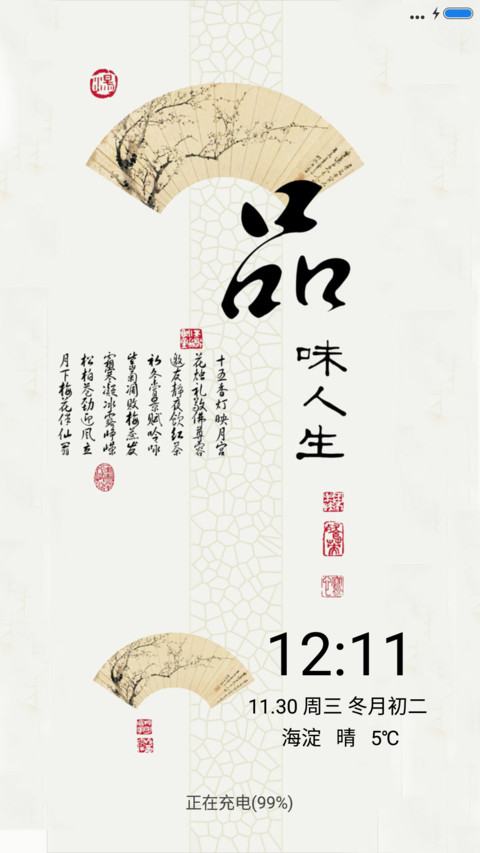 品
味人生
十五香灯映月宫
花烛礼敬佛尊容
邀友静夜饮红茶
初冬赏景赋吟咏
皆菊凋败梅蒸发
霜寒凝冰露峥嵘
松柏苍劲迎风立
月下梅花伴仙翁
12:11
11.30 周三 冬月初二
海淀 晴 5℃
正在充电(99%)